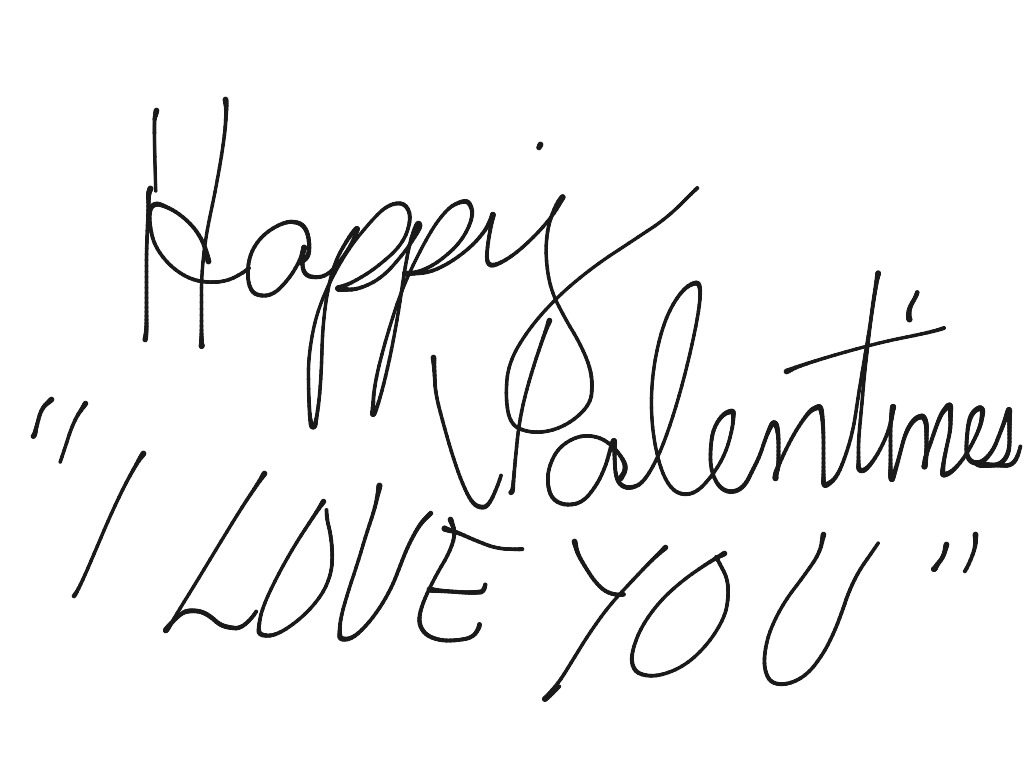 Happy
Valentines
"I LOVE YOU"